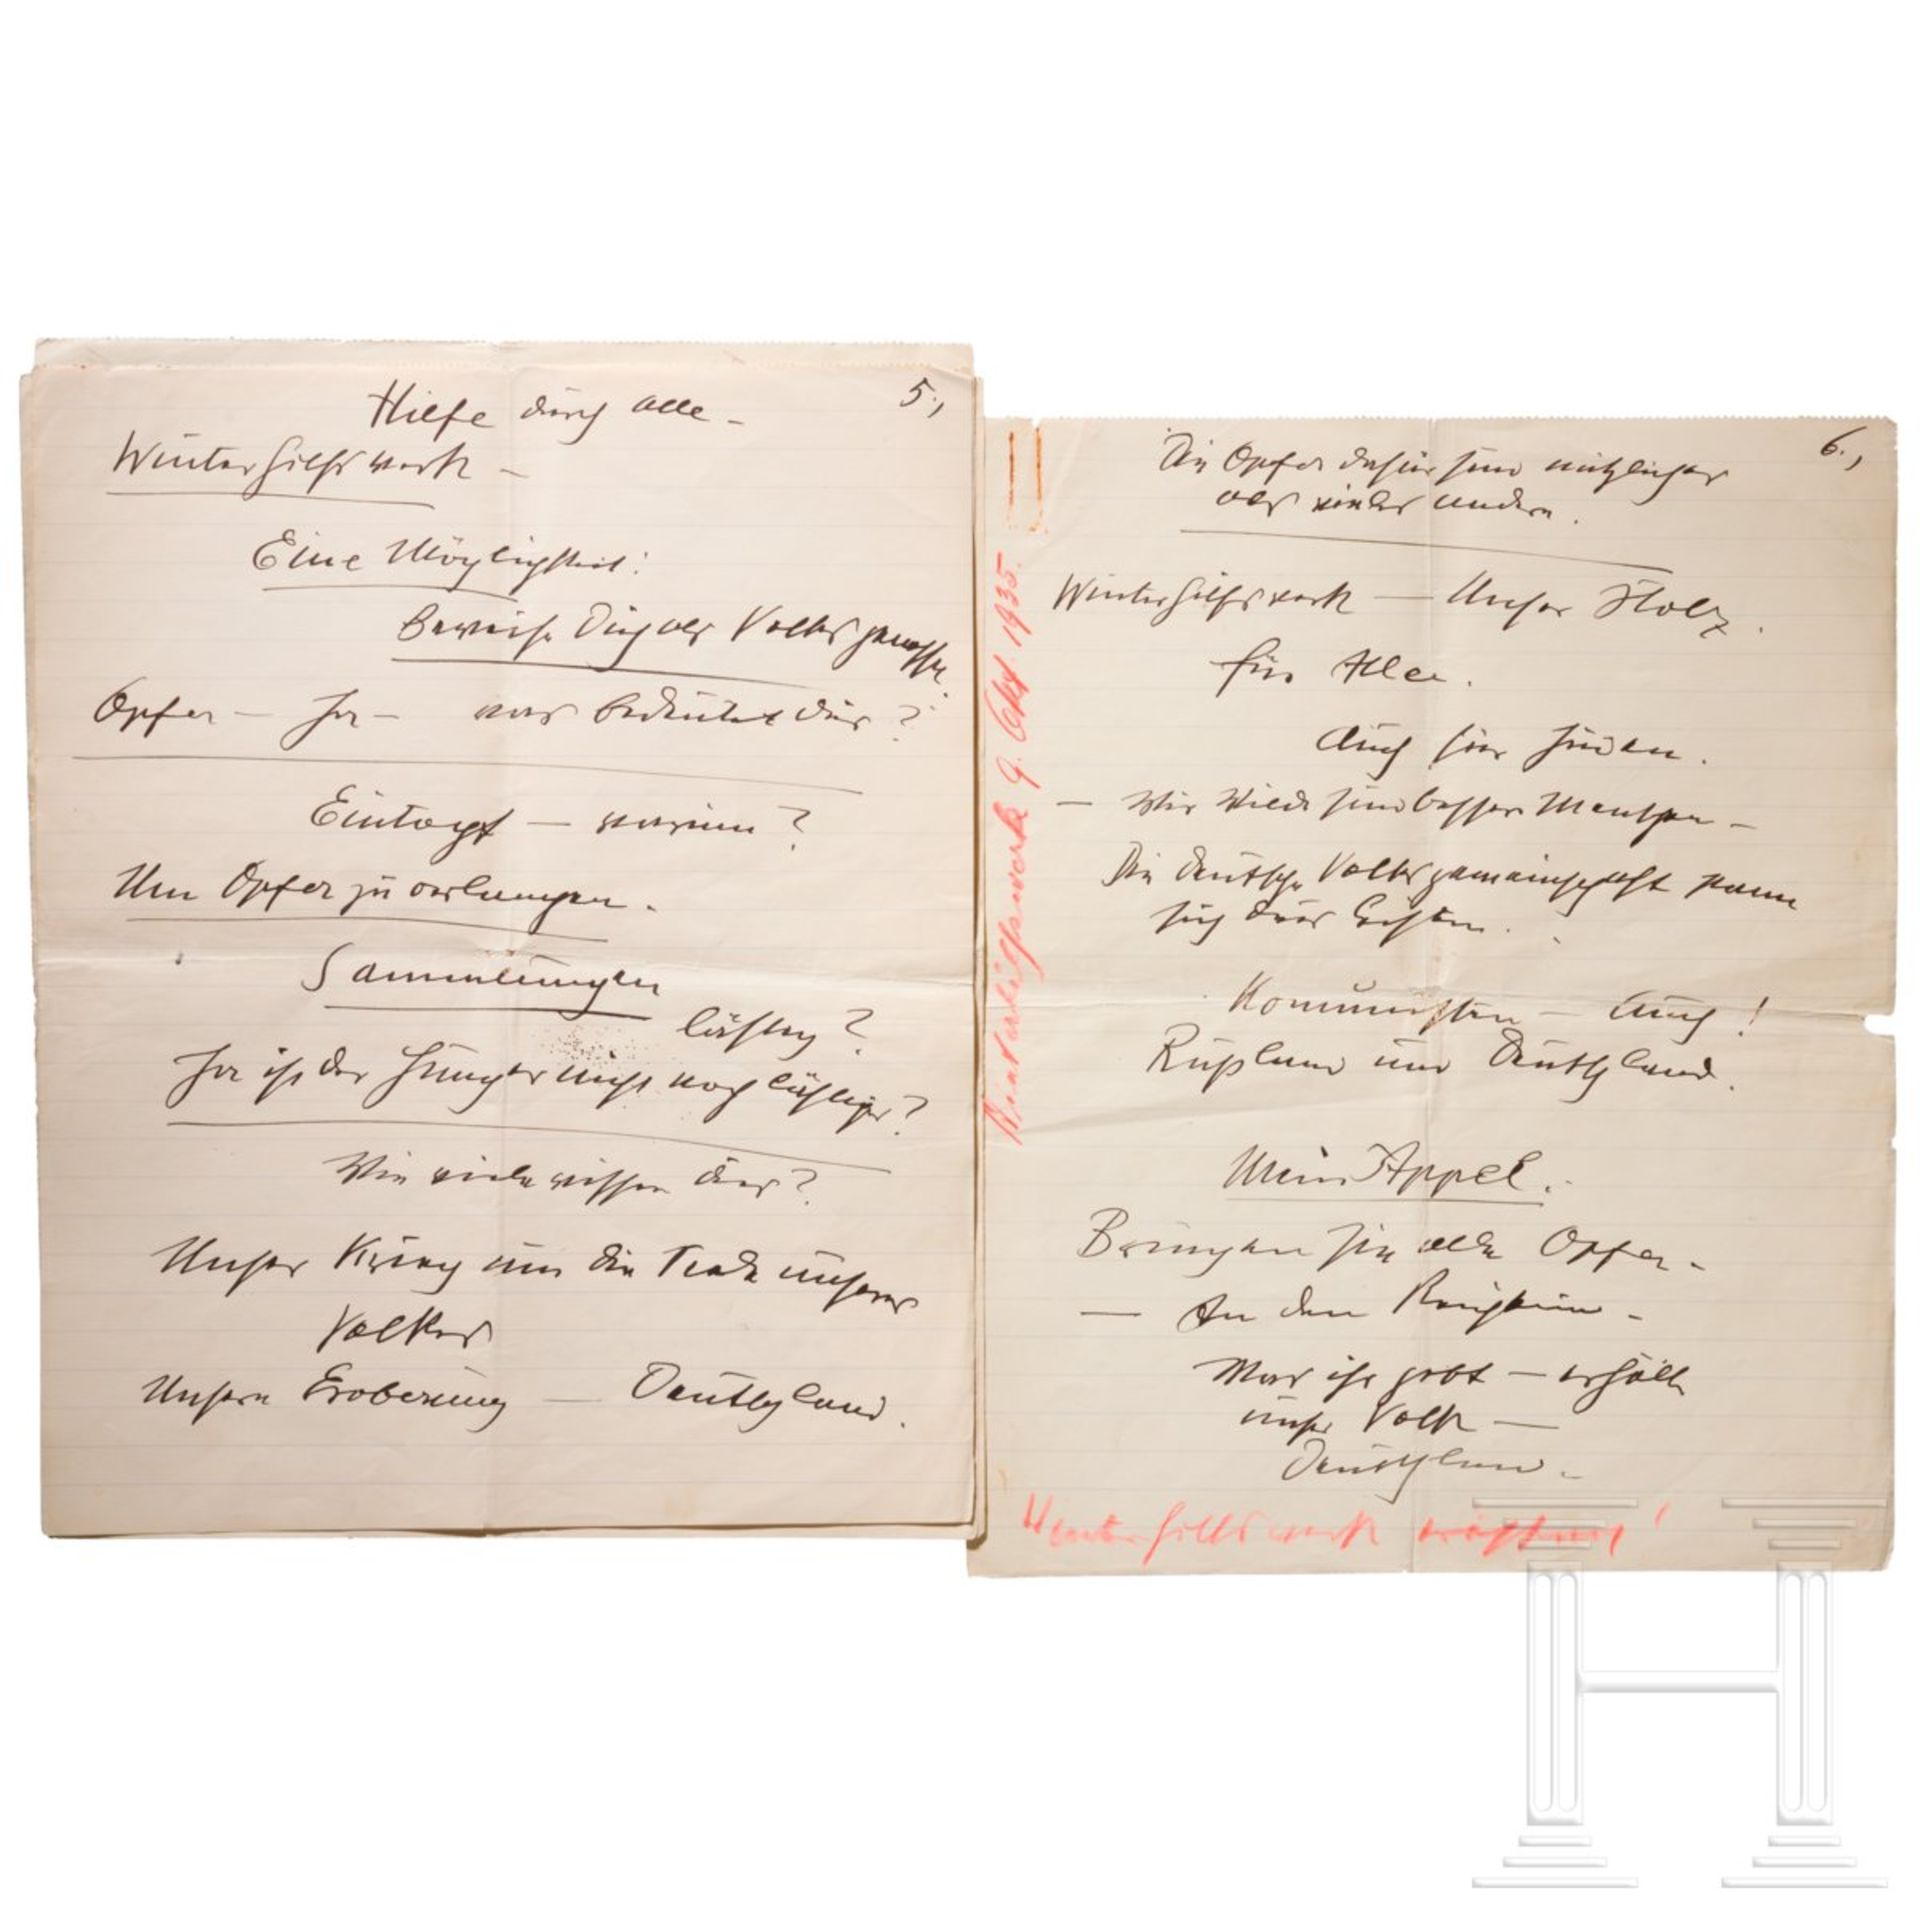 5.,
Hilfe durch alle –
Winterhilfswerk –
Eine Möglichkeit:
Beweise Dich als Volksgenosse.
Opfer – Ja – was bedeutet das?
Eintopf – warum?
Um Opfer zu erlangen.
Sammlungen
lästig?
Ja ist der Hunger nicht noch lästiger?
Wie viele wissen das?
Unser Krieg um die Seele unseres
Volkes
Unsere Eroberung — Deutschland.
6.,
Die Opfer dafür sind nützlicher
als vieles andere.
Winterhilfswerk — Unser Stolz.
für Alle.
Auch für Juden.
— Wir Wilde sind bessere Menschen –
Die deutsche Volksgemeinschaft kann
sich das leisten.
Komunisten – Auch!
Rußland und Deutschland.
Mein Appel.
Bringen Sie alle Opfer –
— An den Reichtum –
Was ihr gebt – erhält
unser Volk —
Deutschland.
Winterhilfswerk 9. Okt. 1935.
Winterhilfswerk eröffnet!
H